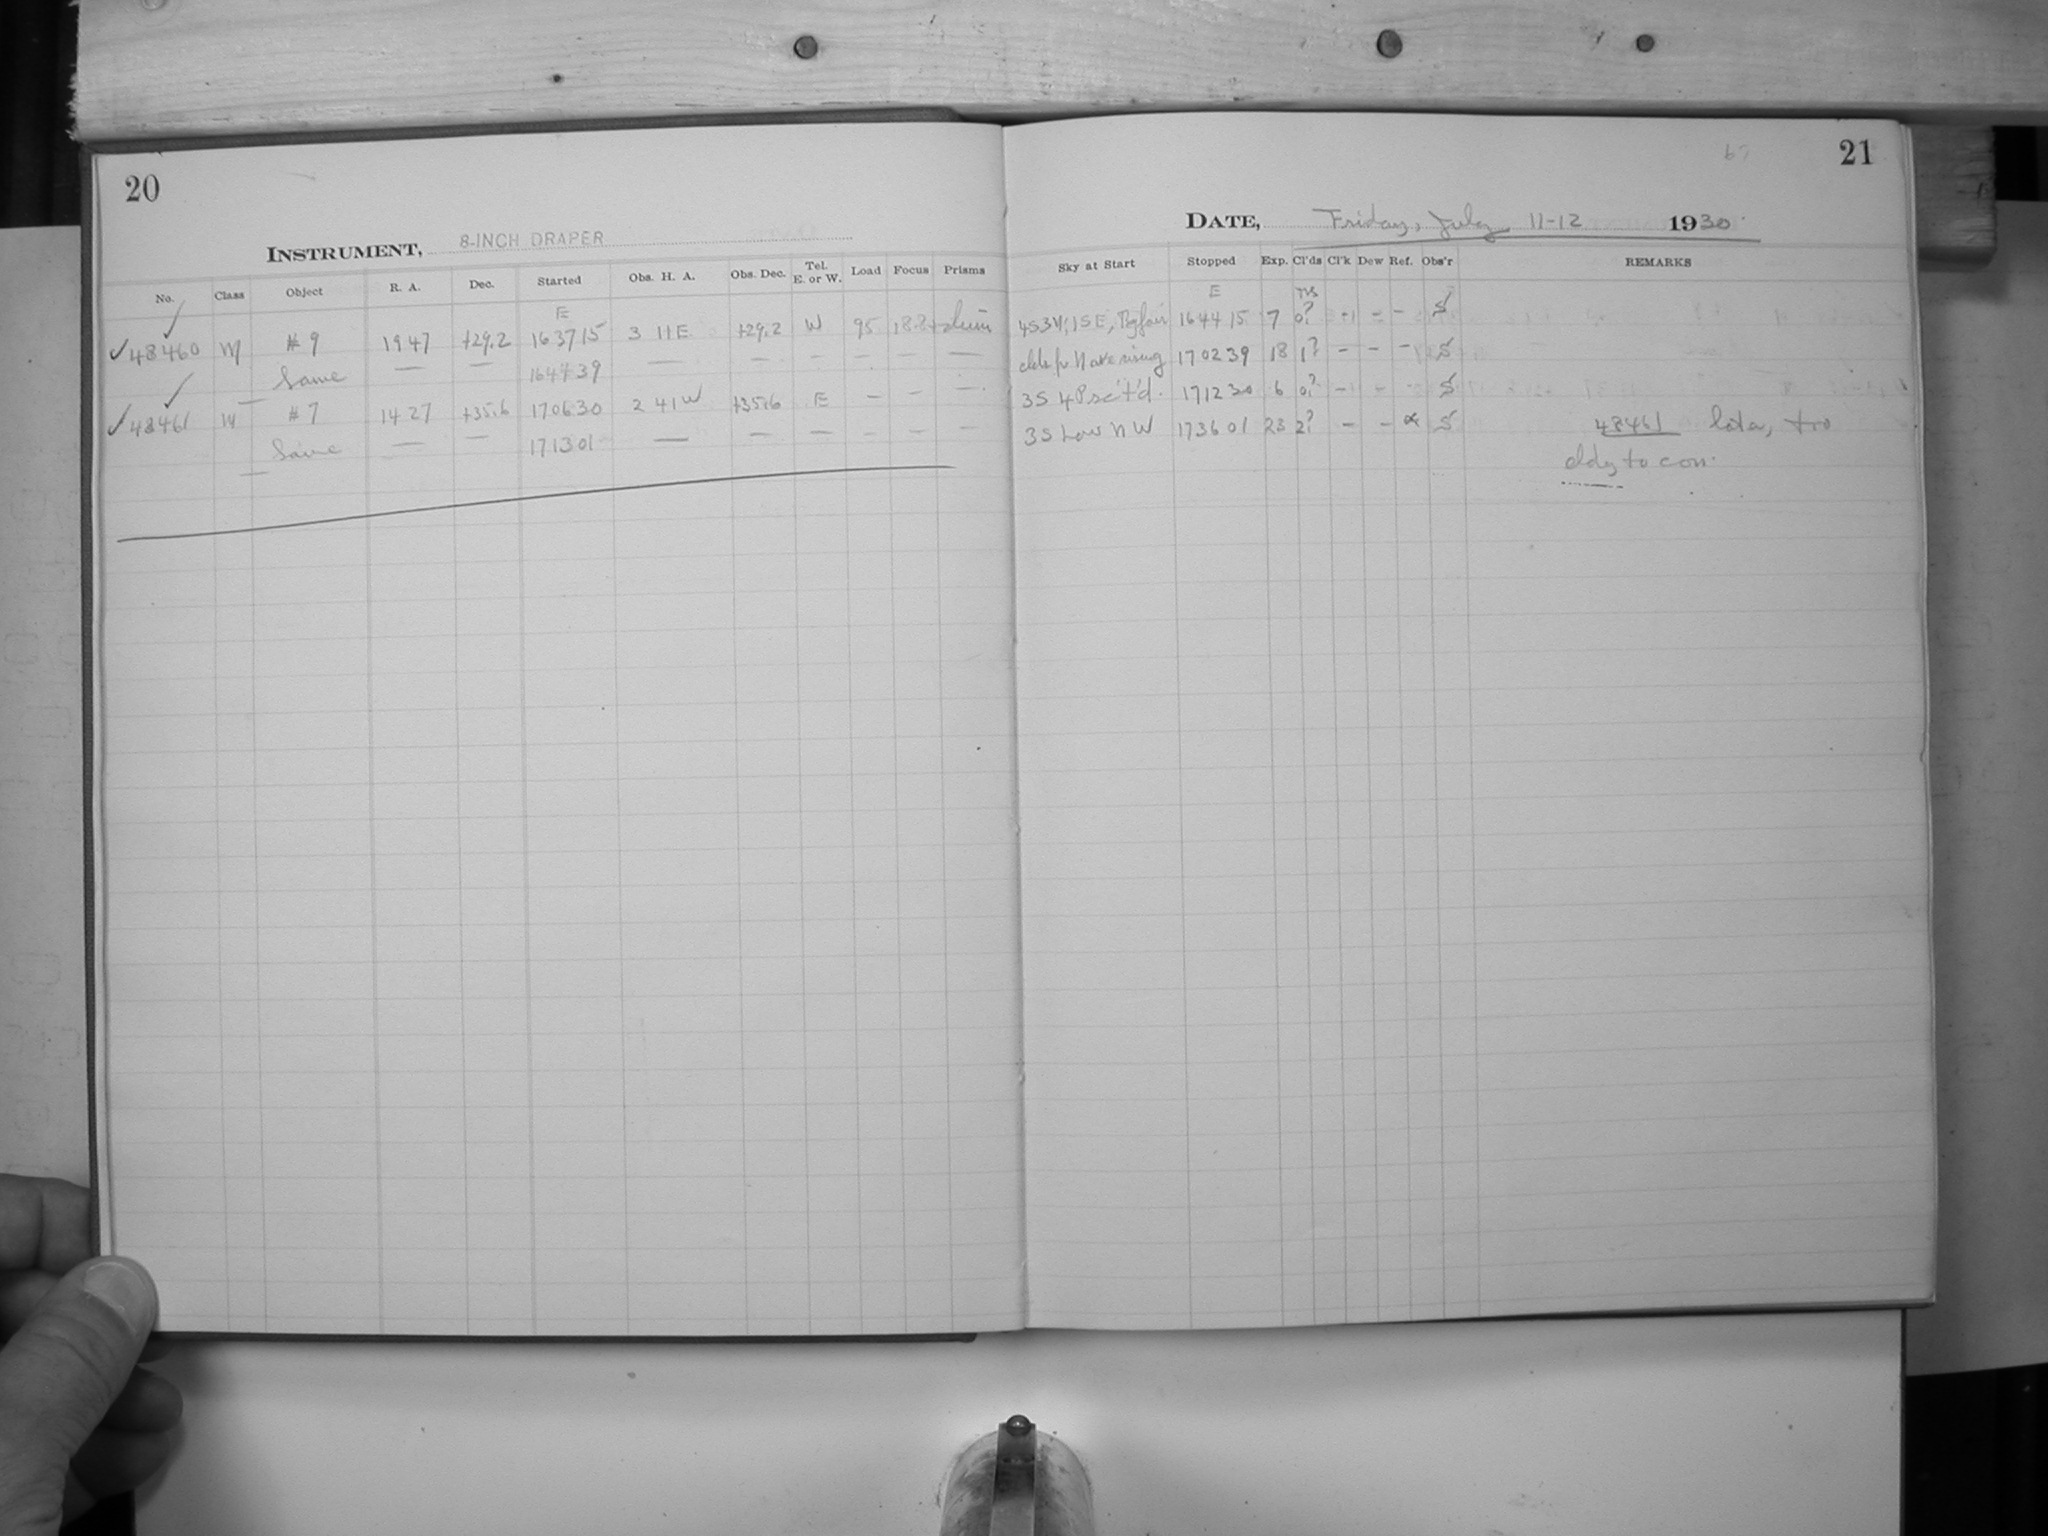 20
INSTRUMENT, 8-INCH DRAPER
No. Class Object R. A. Dec. Started Obs. H. A. Obs. Dec. Tel. E. or W. Load Focus Prisms
E
✓48460 M #9 19 47 +29.2 16 37 15 3 11 E +29.2 W 95
Same — — 16 44 39 — — — — — —
✓48461 M #7 14 27 +35.6 17 06 30 2 41 W +35.6 E — — —
Same — — 17 13 01 — — — — — —
21
DATE, Friday, July 11-12 1930
Sky at Start Stopped Exp. Cl'ds Cl'k Dew Ref. Obs'r REMARKS
E
16 44 15 7 0? S
17 02 39 18 1? — — — S
3S 17 12 30 6 0? S
3S Low NW 17 36 01 23 2? — — S 48461 later, too
cldy to con.